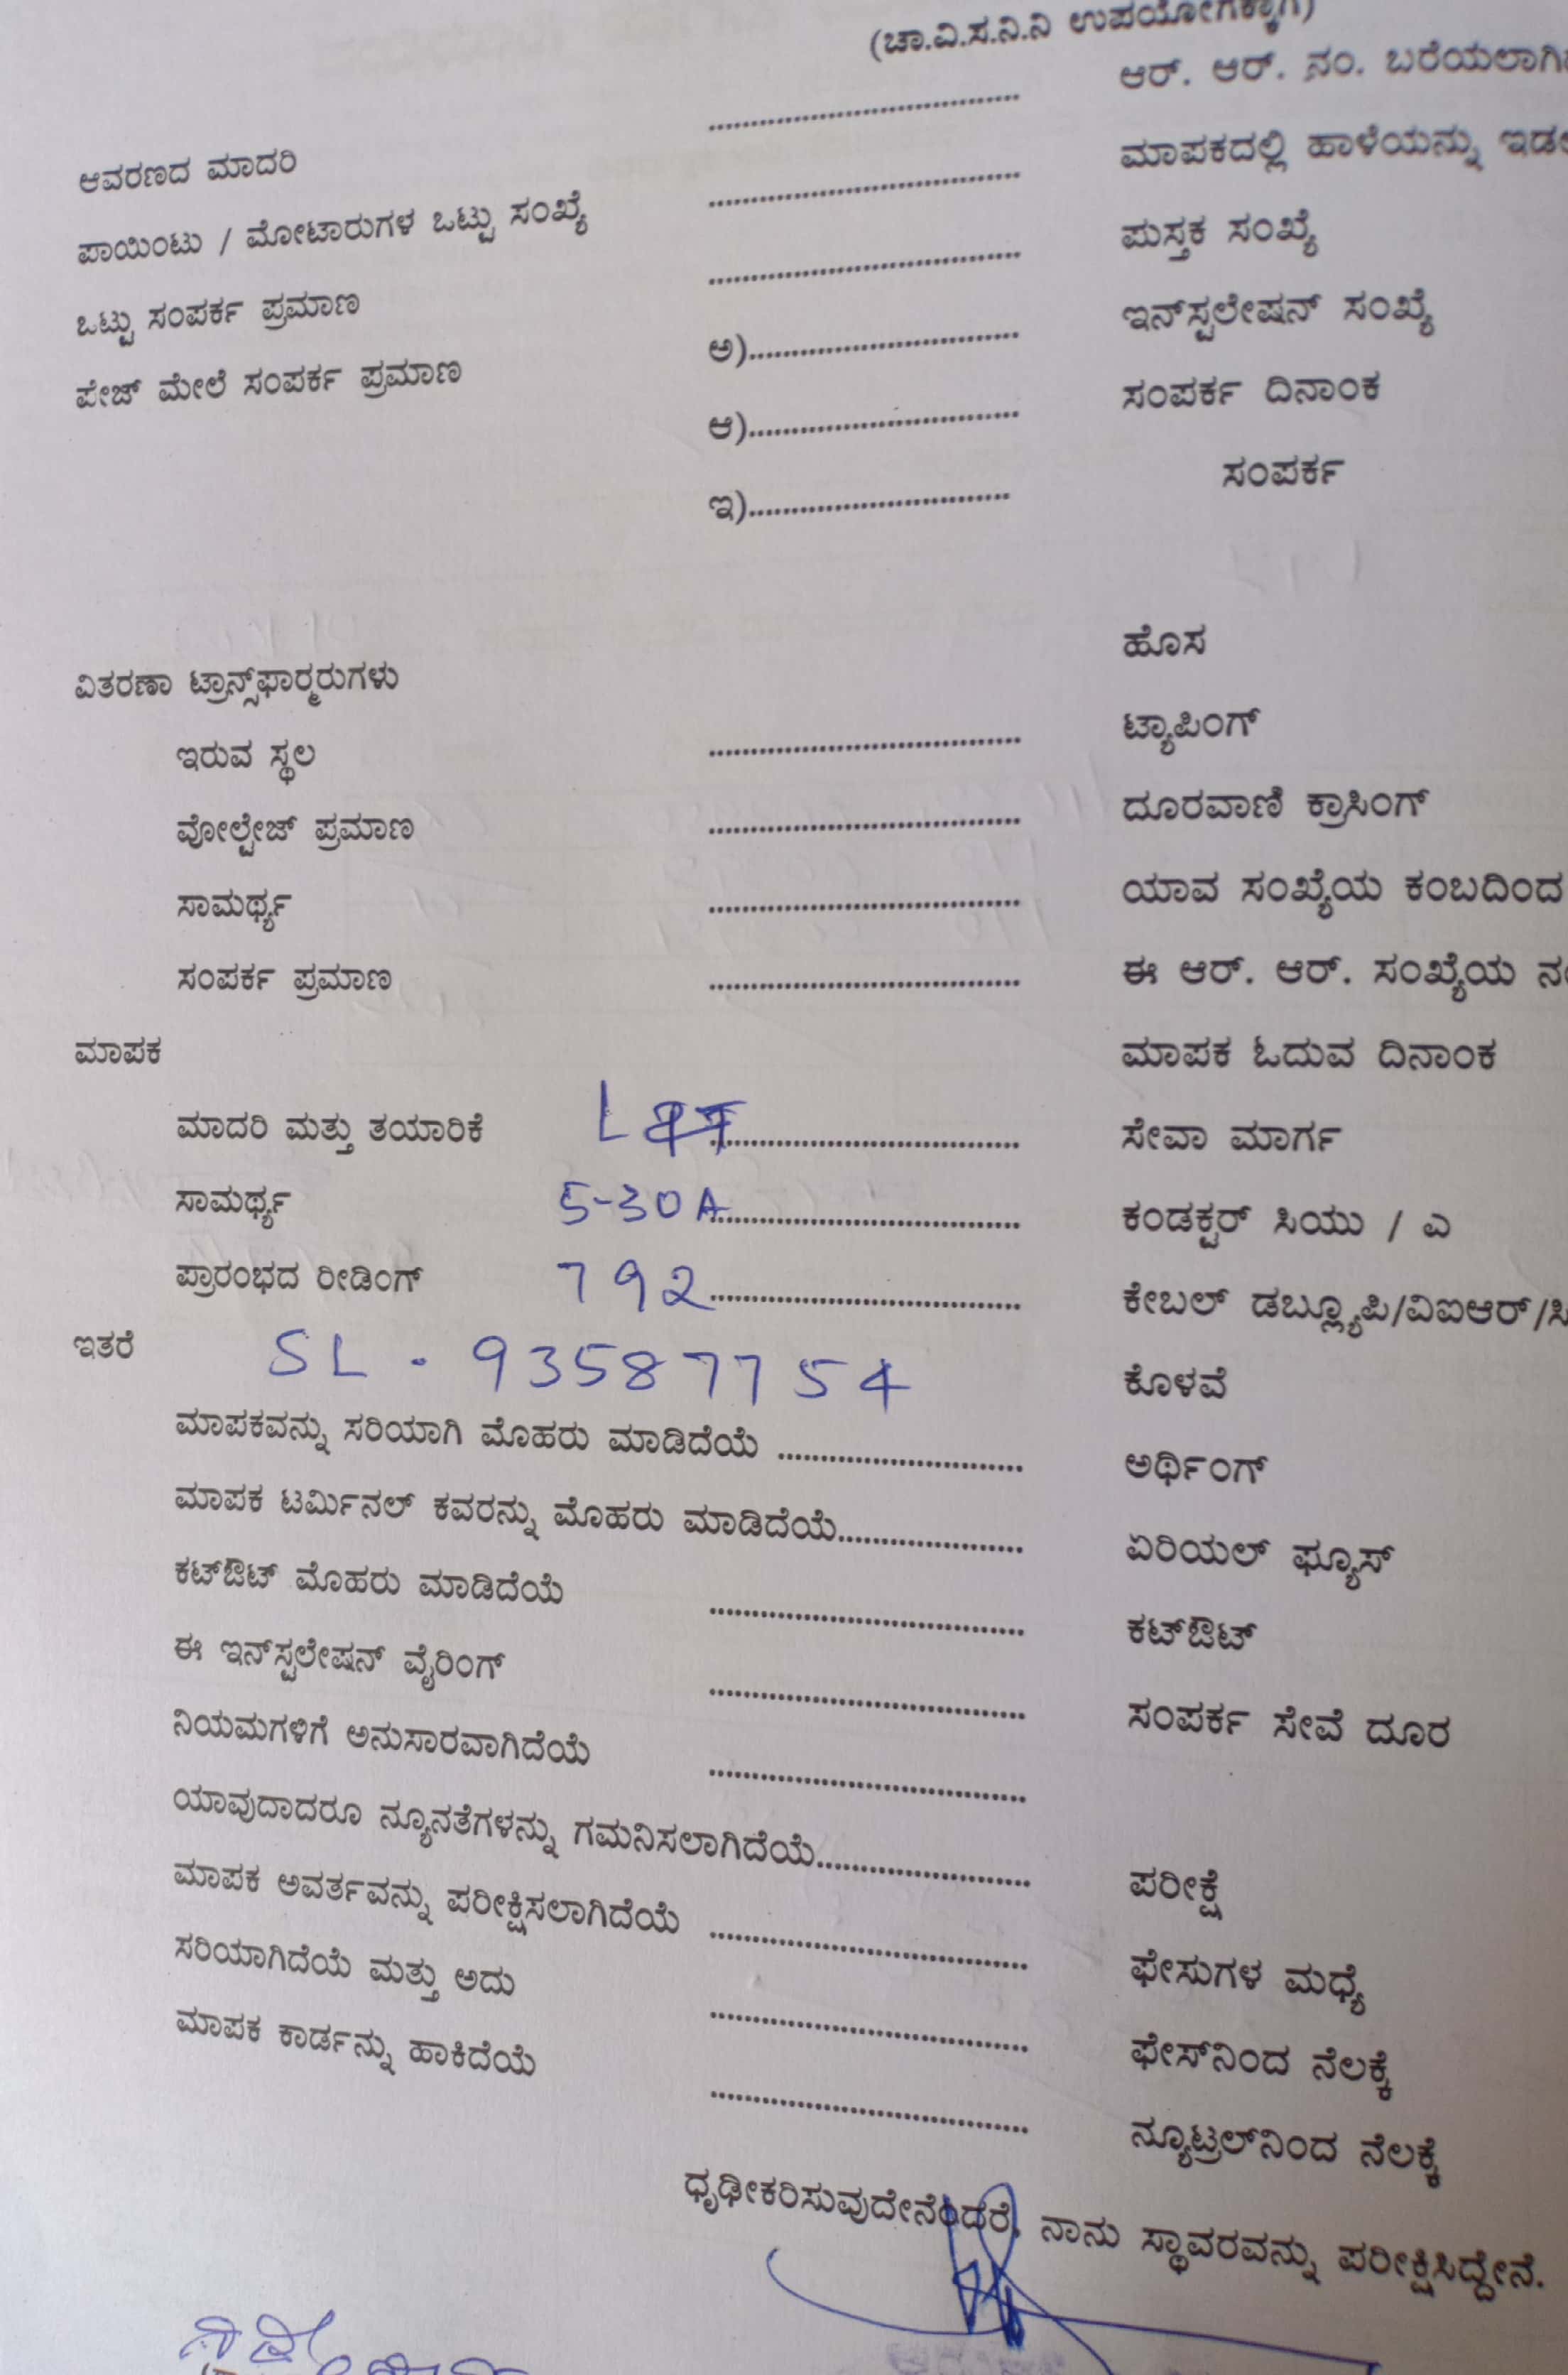 (ಚಾ.ವಿ.ಸ.ನಿ.ನಿ ಉಪಯೋಗಕ್ಕಾಗಿ)
ಆವರಣದ ಮಾದರಿ ....................................
ಪಾಯಿಂಟು / ಮೋಟಾರುಗಳ ಒಟ್ಟು ಸಂಖ್ಯೆ ....................................
ಒಟ್ಟು ಸಂಪರ್ಕ ಪ್ರಮಾಣ ....................................
ಪೇಜ್ ಮೇಲೆ ಸಂಪರ್ಕ ಪ್ರಮಾಣ ಅ)................................
ಆ)................................
ಇ)................................
ವಿತರಣಾ ಟ್ರಾನ್ಸ್‌ಫಾರ್‍ಮರುಗಳು
ಇರುವ ಸ್ಥಲ ....................................
ವೋಲ್ಟೇಜ್ ಪ್ರಮಾಣ ....................................
ಸಾಮರ್ಥ್ಯ ....................................
ಸಂಪರ್ಕ ಪ್ರಮಾಣ ....................................
ಮಾಪಕ
ಮಾದರಿ ಮತ್ತು ತಯಾರಿಕೆ ....................................
ಸಾಮರ್ಥ್ಯ 5-30 A....................................
ಪ್ರಾರಂಭದ ರೀಡಿಂಗ್ 792....................................
ಇತರೆ SL - 93587754
ಮಾಪಕವನ್ನು ಸರಿಯಾಗಿ ಮೊಹರು ಮಾಡಿದೆಯೆ ............................
ಮಾಪಕ ಟರ್ಮಿನಲ್ ಕವರನ್ನು ಮೊಹರು ಮಾಡಿದೆಯೆ......................
ಕಟ್‌ಔಟ್ ಮೊಹರು ಮಾಡಿದೆಯೆ ....................................
ಈ ಇನ್‌ಸ್ಟಲೇಷನ್ ವೈರಿಂಗ್ ....................................
ನಿಯಮಗಳಿಗೆ ಅನುಸಾರವಾಗಿದೆಯೆ ....................................
ಯಾವುದಾದರೂ ನ್ಯೂನತೆಗಳನ್ನು ಗಮನಿಸಲಾಗಿದೆಯೆ.........................
ಮಾಪಕ ಅವರ್ತವನ್ನು ಪರೀಕ್ಷಿಸಲಾಗಿದೆಯೆ ....................................
ಸರಿಯಾಗಿದೆಯೆ ಮತ್ತು ಅದು ....................................
ಮಾಪಕ ಕಾರ್ಡನ್ನು ಹಾಕಿದೆಯೆ ....................................
ಆರ್. ಆರ್. ನಂ.
ಮಾಪಕದಲ್ಲಿ ಹಾಳೆಯನ್ನು
ಪುಸ್ತಕ ಸಂಖ್ಯೆ
ಇನ್‌ಸ್ಟಲೇಷನ್ ಸಂಖ್ಯೆ
ಸಂಪರ್ಕ ದಿನಾಂಕ
ಸಂಪರ್ಕ
ಹೊಸ
ಟ್ಯಾಪಿಂಗ್
ದೂರವಾಣಿ ಕ್ರಾಸಿಂಗ್
ಯಾವ ಸಂಖ್ಯೆಯ ಕಂಬದಿಂದ
ಈ ಆರ್. ಆರ್. ಸಂಖ್ಯೆಯ
ಮಾಪಕ ಓದುವ ದಿನಾಂಕ
ಸೇವಾ ಮಾರ್ಗ
ಕಂಡಕ್ಟರ್ ಸಿಯು / ಎ
ಕೇಬಲ್ ಡಬ್ಲ್ಯೂಪಿ/ವಿಐಆರ್/
ಕೊಳವೆ
ಅರ್ಥಿಂಗ್
ಏರಿಯಲ್ ಫ್ಯೂಸ್
ಕಟ್‌ಔಟ್
ಸಂಪರ್ಕ ಸೇವೆ ದೂರ
ಪರೀಕ್ಷೆ
ಫೇಸುಗಳ ಮಧ್ಯೆ
ಫೇಸ್‌ನಿಂದ ನೆಲಕ್ಕೆ
ನ್ಯೂಟ್ರಲ್‌ನಿಂದ ನೆಲಕ್ಕೆ
ಧೃಢೀಕರಿಸುವುದೇನೆಂದರೆ, ನಾನು ಸ್ಥಾವರವನ್ನು ಪರೀಕ್ಷಿಸಿದ್ದೇನೆ.